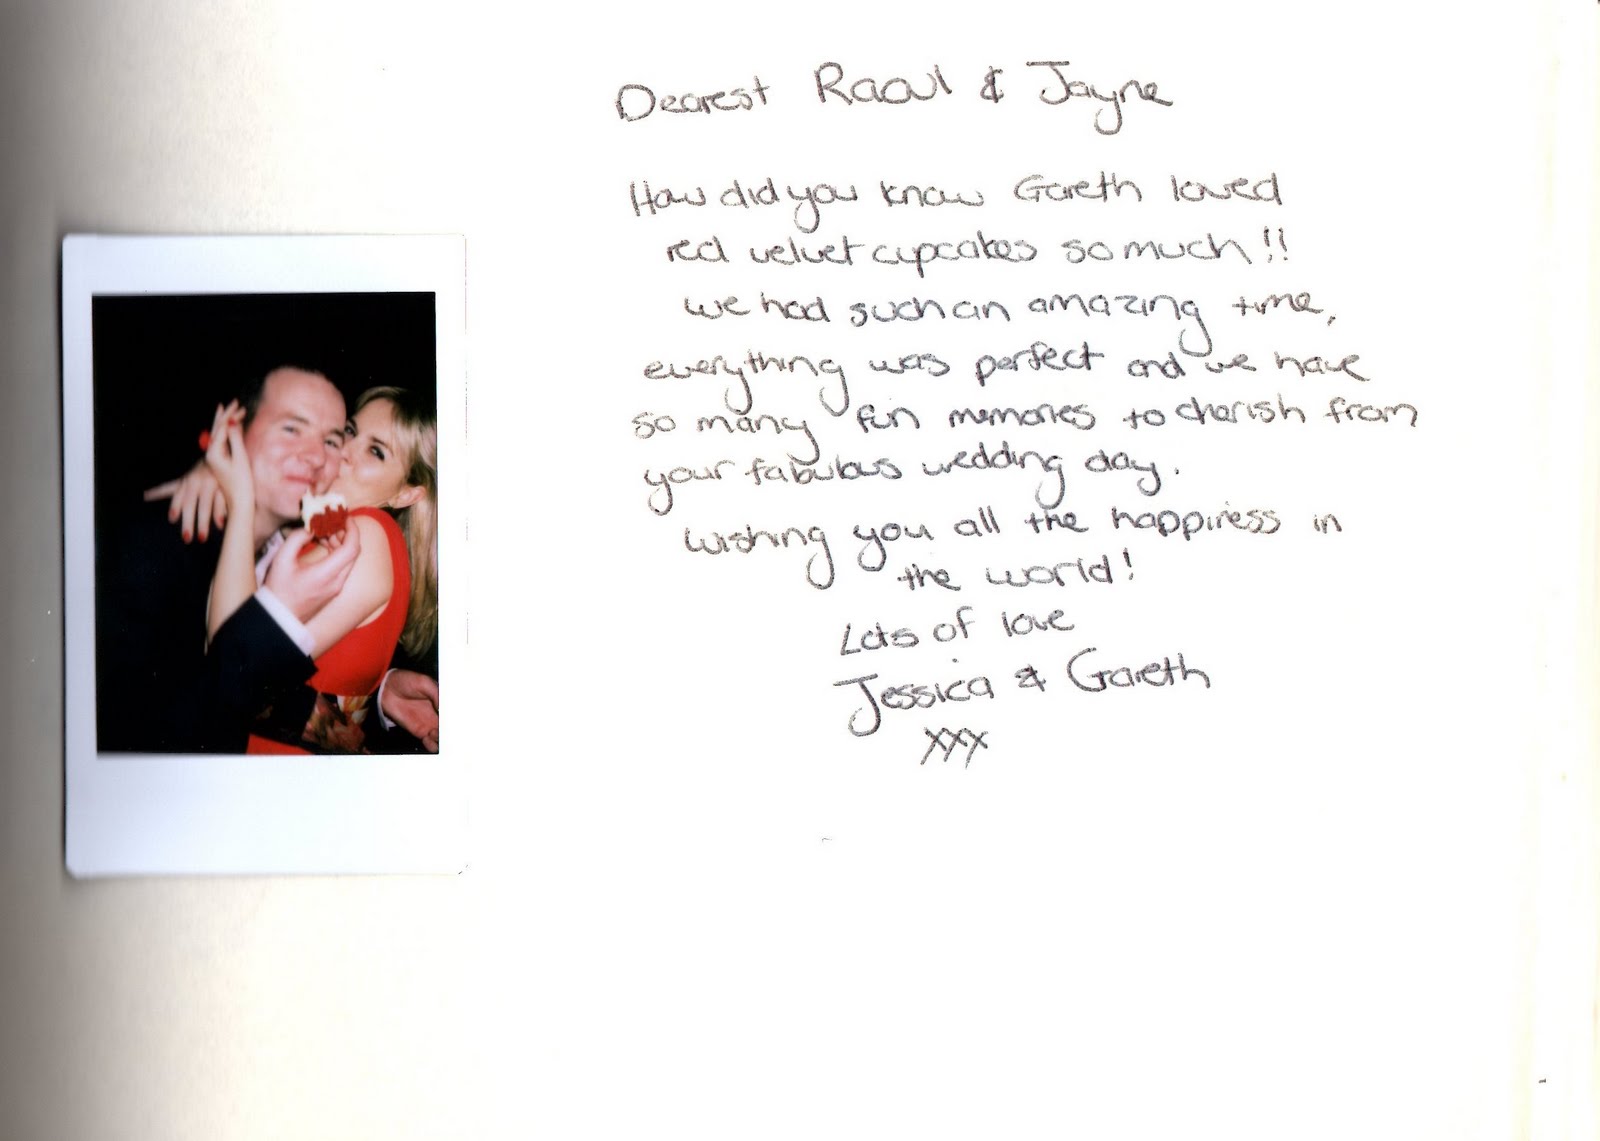 Dearest Raoul & Jayne
How did you know Gareth loved
red velvet cupcakes so much!!
we had such an amazing time,
everything was perfect and we have
so many fun memories to cherish from
your fabulous wedding day.
Wishing you all the happiness in
the world!
Lots of love
Jessica & Gareth
xxx